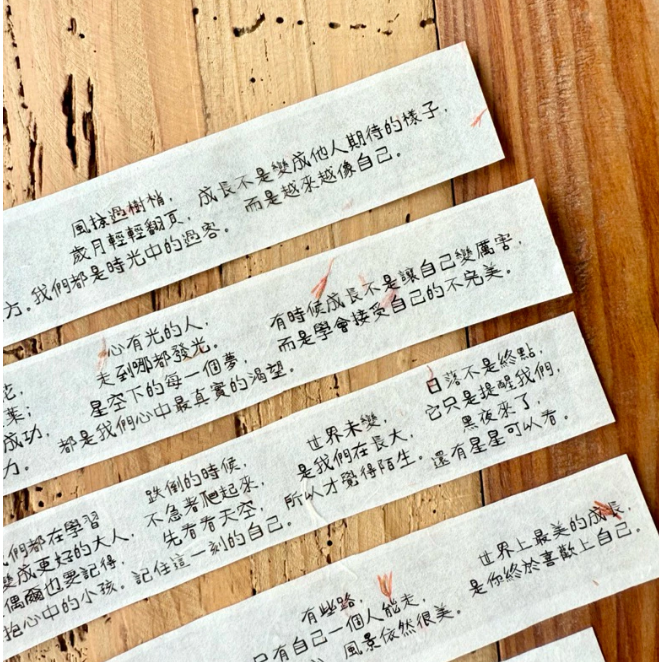 風掠過樹梢，
歲月輕輕翻頁，
方。我們都是時光中的過客。
成長不是變成他人期待的樣子，
而是越來越像自己。
花，
葉；
成功，
力。
心有光的人，
走到哪都發光。
星空下的每一個夢，
都是我們心中最真實的渴望。
有時候成長不是讓自己變厲害，
而是學會接受自己的不完美。
們都在學習
變成更好的大人，
偶爾也要記得
抱心中的小孩。
跌倒的時候，
不急著爬起來，
先看看天空，
記住這一刻的自己。
世界未變，
是我們在長大，
所以才覺得陌生。
日落不是終點，
它只是提醒我們，
黑夜來了，
還有星星可以看。
有些路，
只有自己一個人能走，
風景依然很美。
世界上最美的成長，
是你終於喜歡上自己。